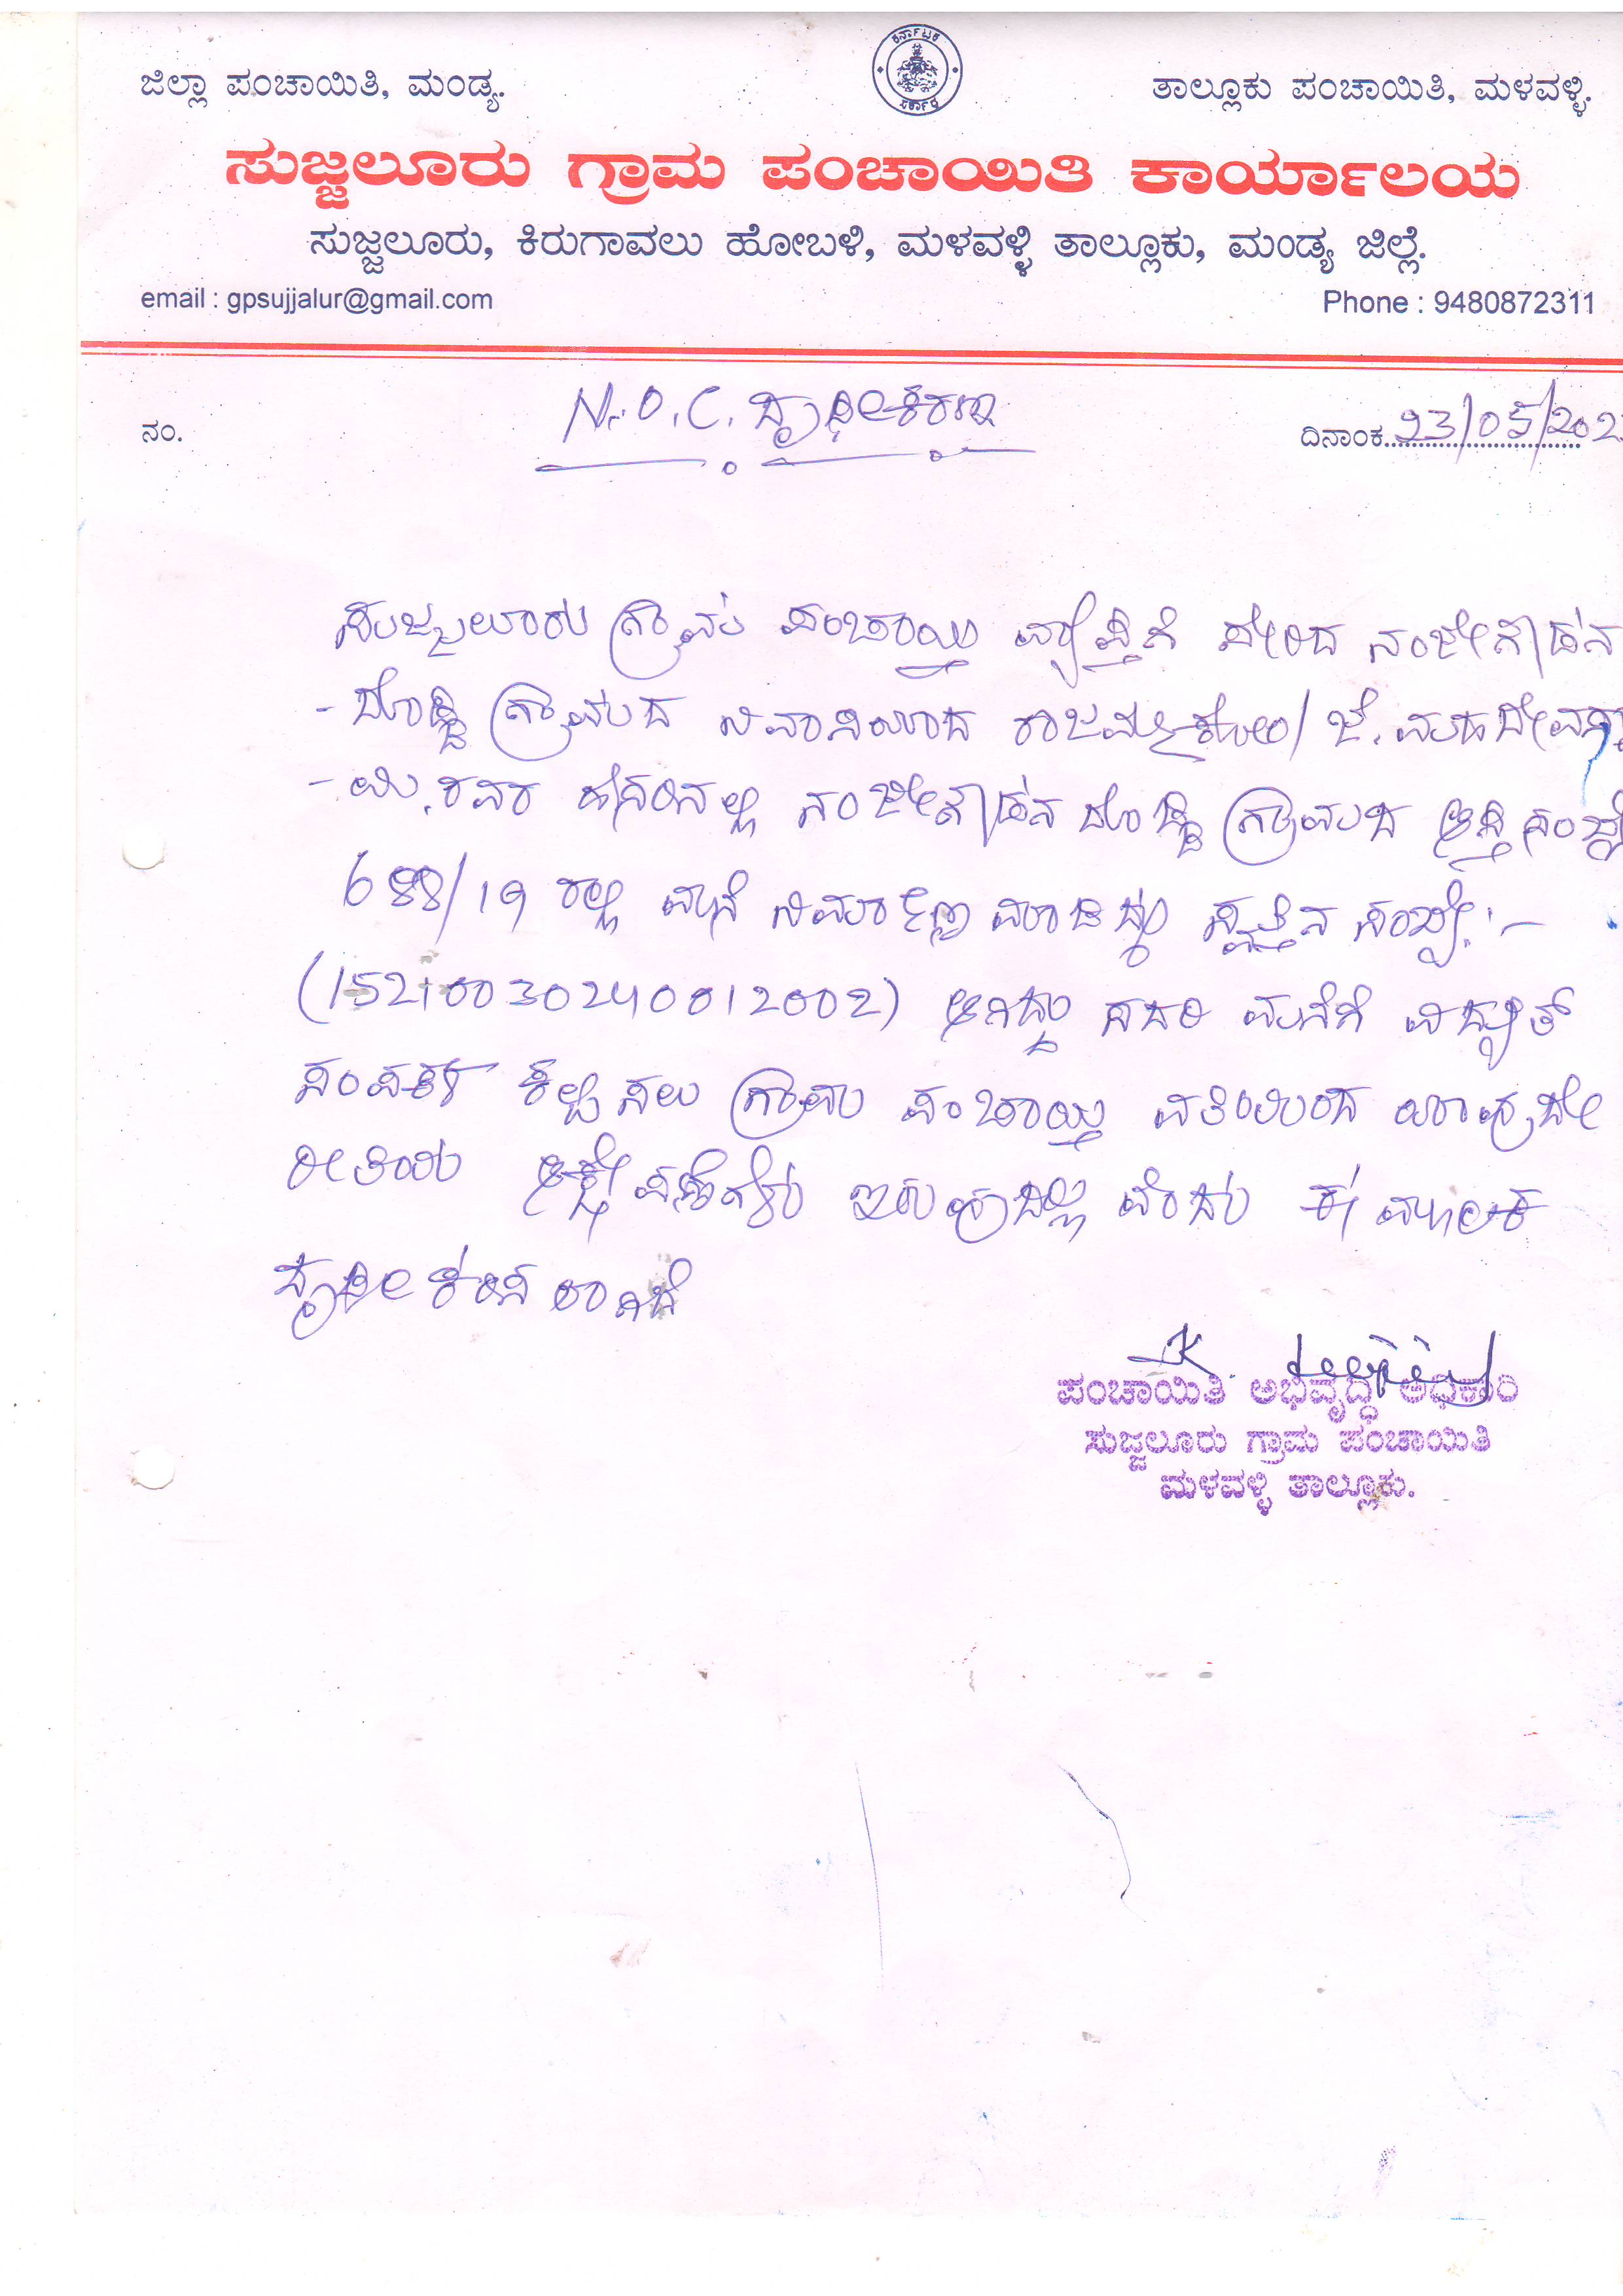 ಕರ್ನಾಟಕ ಸರ್ಕಾರ
ಜಿಲ್ಲಾ ಪಂಚಾಯಿತಿ, ಮಂಡ್ಯ.
ತಾಲ್ಲೂಕು ಪಂಚಾಯಿತಿ, ಮಳವಳ್ಳಿ.
ಸುಜ್ಜಲೂರು ಗ್ರಾಮ ಪಂಚಾಯಿತಿ ಕಾರ್ಯಾಲಯ
ಸುಜ್ಜಲೂರು, ಕಿರುಗಾವಲು ಹೋಬಳಿ, ಮಳವಳ್ಳಿ ತಾಲ್ಲೂಕು, ಮಂಡ್ಯ ಜಿಲ್ಲೆ.
email : gpsujjalur@gmail.com
Phone : 9480872311
ನಂ.
N.O.C. ದೃಢೀಕರಣ
ದಿನಾಂಕ 23/05/202
ಸುಜ್ಜಲೂರು ಗ್ರಾಮ ಪಂಚಾಯ್ತಿ ವ್ಯಾಪ್ತಿಗೆ ಸೇರಿದ ನಂಜೇಗೌಡನ
- ದೊಡ್ಡಿ ಗ್ರಾಮದ ನಿವಾಸಿಯಾದ ರಾಜಮ್ಮ ಕೋಂ/ ಜೆ. ಮಹದೇವಸ್ವಾ
- ಮಿ, ರವರ ಹೆಸರಿನಲ್ಲಿ ನಂಜೇಗೌಡನ ದೊಡ್ಡಿ ಗ್ರಾಮದ ಆಸ್ತಿ ಸಂಖ್ಯೆ
688/19 ರಲ್ಲಿ ಮನೆ ನಿರ್ಮಾಣ ಮಾಡಿದ್ದು ಸ್ವತ್ತಿನ ಸಂಖ್ಯೆ:-
(15210030240012002) ಆಗಿದ್ದು ಸದರಿ ಮನೆಗೆ ವಿದ್ಯುತ್
ಸಂಪರ್ಕ ಕಲ್ಪಿಸಲು ಗ್ರಾಮ ಪಂಚಾಯ್ತಿ ವತಿಯಿಂದ ಯಾವುದೇ
ರೀತಿಯ ಆಕ್ಷೇಪಣೆಗಳು ಇರುವುದಿಲ್ಲ ವೆಂದು ಈ ಮೂಲಕ
ದೃಢೀಕರಿಸಲಾಗಿದೆ
ಪಂಚಾಯಿತಿ ಅಭಿವೃದ್ಧಿ ಅಧಿಕಾರಿ
ಸುಜ್ಜಲೂರು ಗ್ರಾಮ ಪಂಚಾಯಿತಿ
ಮಳವಳ್ಳಿ ತಾಲ್ಲೂಕು.